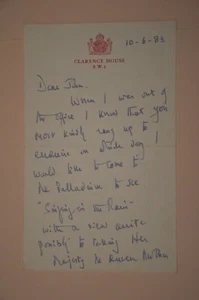 CLARENCE HOUSE
S.W.1
10-6-83
Dear John.
When I was out of
the office I know that you
most kindly rang up to
enquire in I
would like to come to
the Palladium to see
"Singing in the Rain"
with a view quite
possibly to taking Her
Majesty Queen Mother